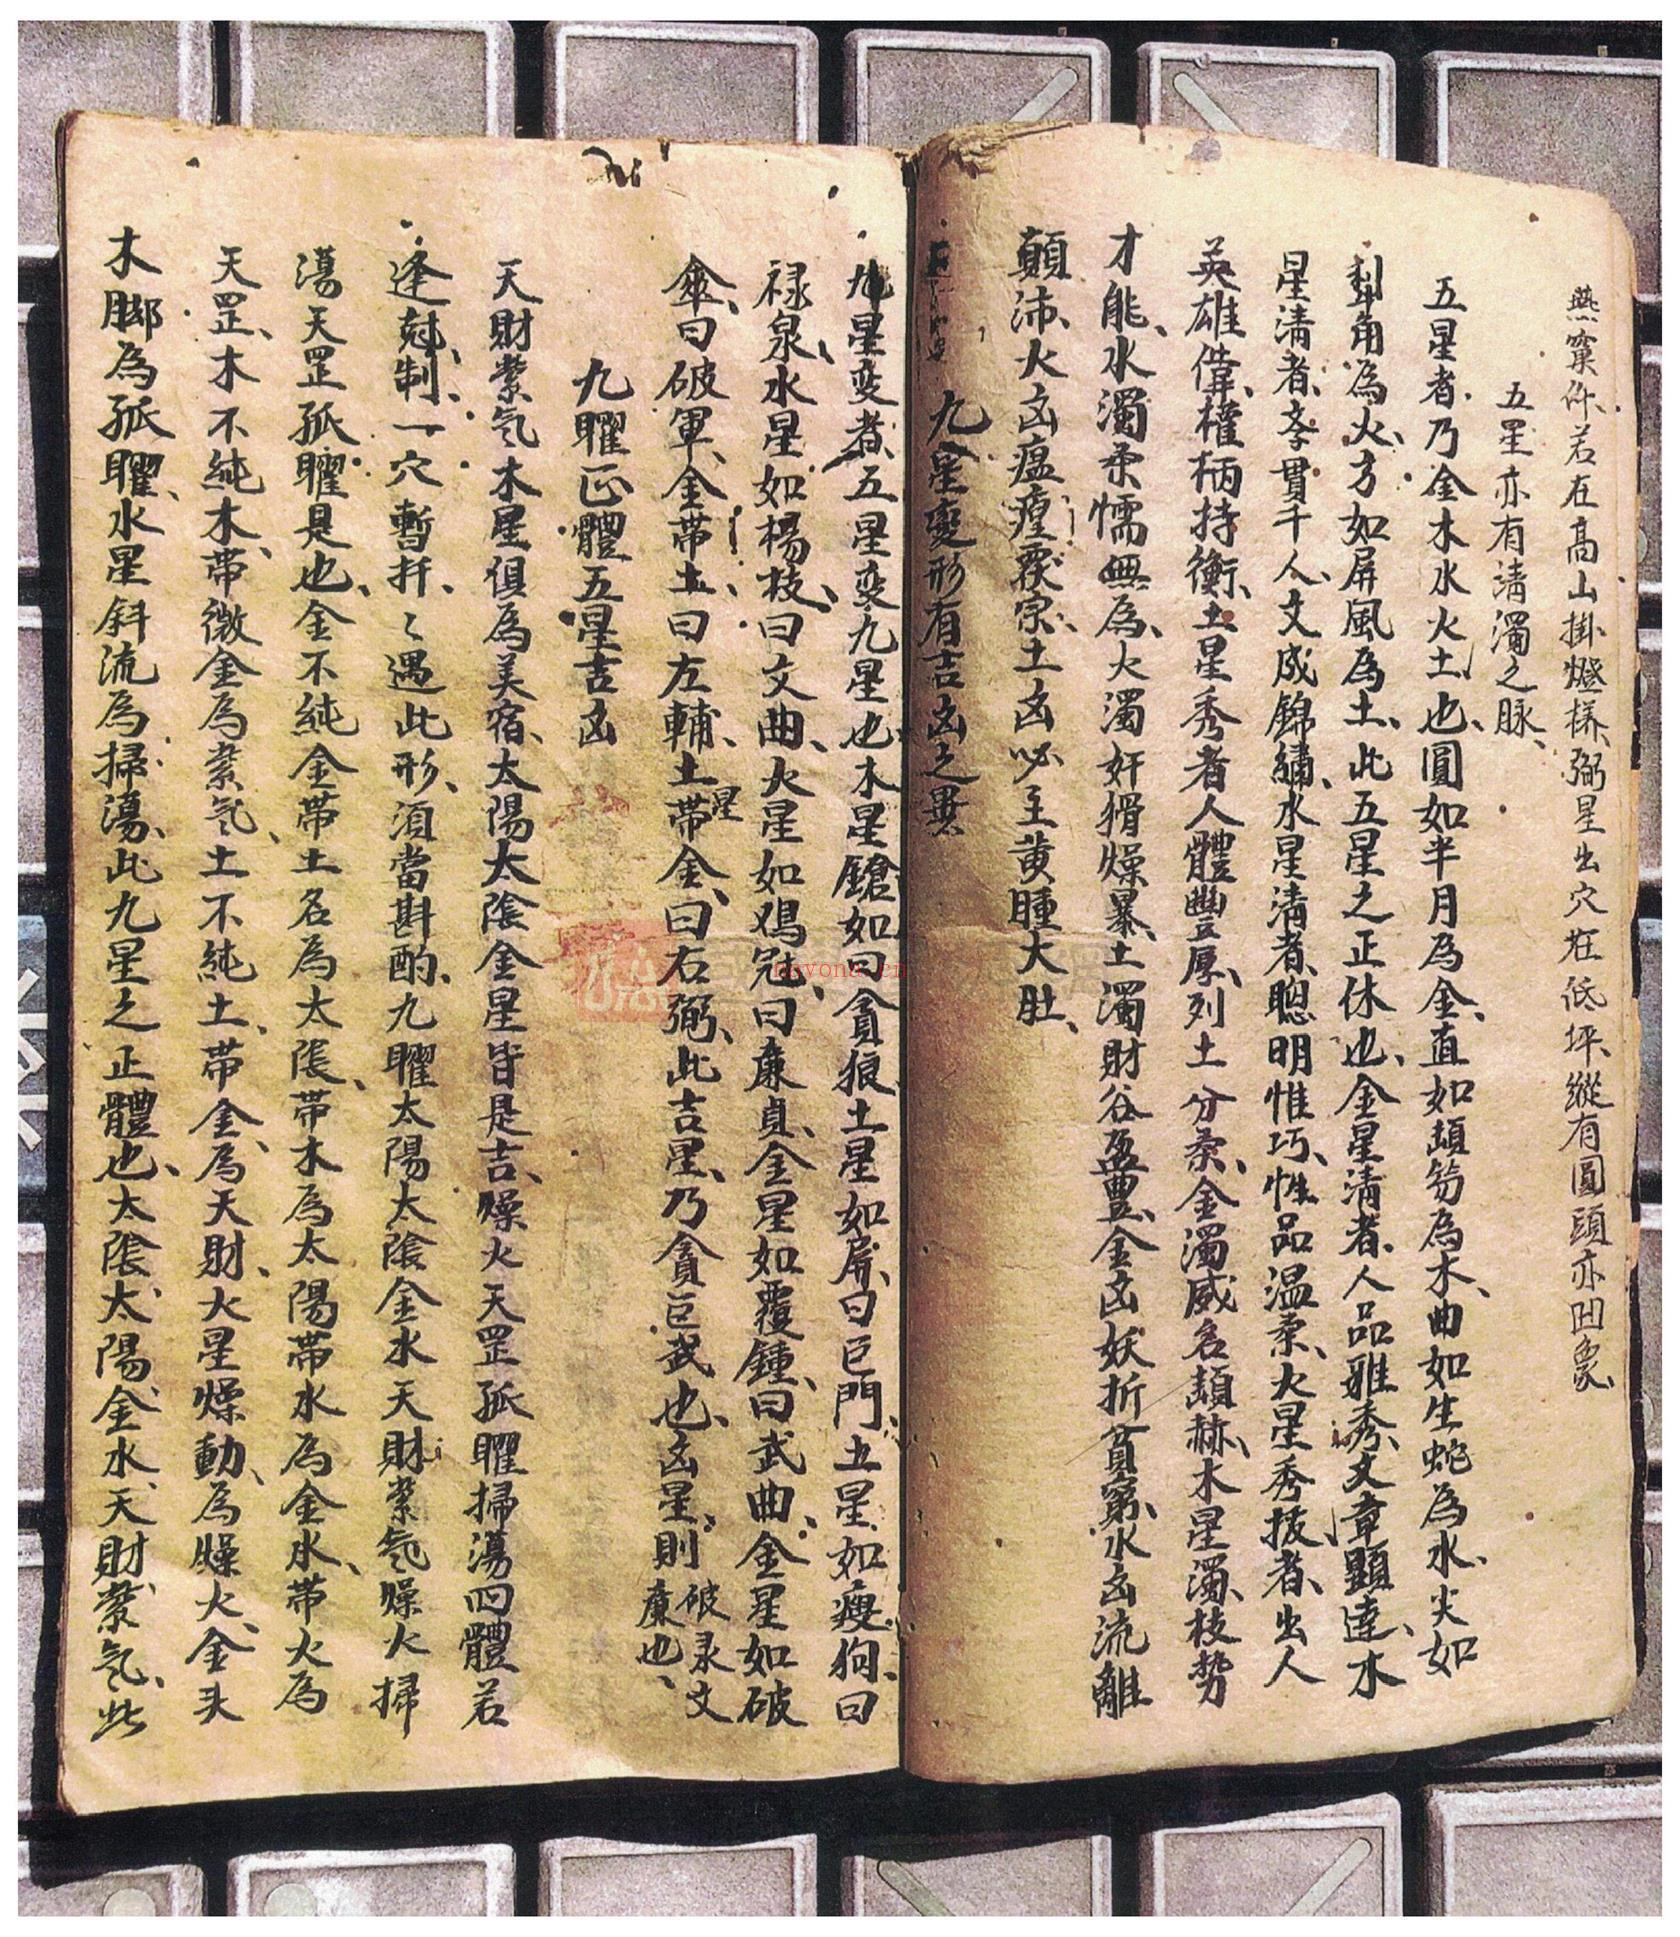 燕窠仵、若在高山掛燈樣、弼星出穴在低坪、縱有圓頭亦凹象、
五星亦有清濁之脉、
五星者乃金木水火土也、圓如半月為金、直如頓笏為木、曲如生蛇為水、尖如
犁角為火、方如屏風為土、此五星之正体也、金星清者、人品雅秀、文章顯達、木
星清者、孝貫千人、文成錦繡、水星清者、聰明惟巧、性品温柔、火星秀拔者、出人
英雄偉、權柄持衡、土星秀者人體豐厚、列土分茅、金濁威名頡赫、木星濁、枝势
才能、水濁柔懦無為、火濁奸猾燥暴、土濁財谷盈豊、金凶妖折貧窮、水凶流離
顛沛、火凶瘟瘟疫宗、土凶必主黄腫大肚、
九星變形有吉凶之異
九星变者、五星变九星也、木星鎗如曰貪狼、土星如屏、曰巨門、土星如瘦狗、曰
禄泉、水星如楊枝、曰文曲、火星如鳮冠、曰廉貞、金星如覆鍾、曰武曲、金星如破
傘、曰破軍、金帯土、曰左輔、土星帯金、曰右弼、此吉星、乃貪巨武也、凶星、則破录文廉也、
九曜正體五星吉凶
天財紫气木星俱為美宿、太陽太陰金星皆是吉、燥火天罡孤曜掃蕩四體若
逢尅制、一穴暫扦、〻遇此形、須當斟酌、九曜太陽太陰金水天財紫氣燥火掃
蕩天罡孤曜是也、金不純金帯土名為太陰、帯木為太陽帯水為金水、帯火為
天罡、木不純木、帯微金為紫气、土不純土、帯金、為天財、火星燥動、為燥火、金头
木脚為孤曜、水星斜流為掃蕩、此九星之正體也、太陰、太陽、金水、天財、紫气、此
noyona.cn